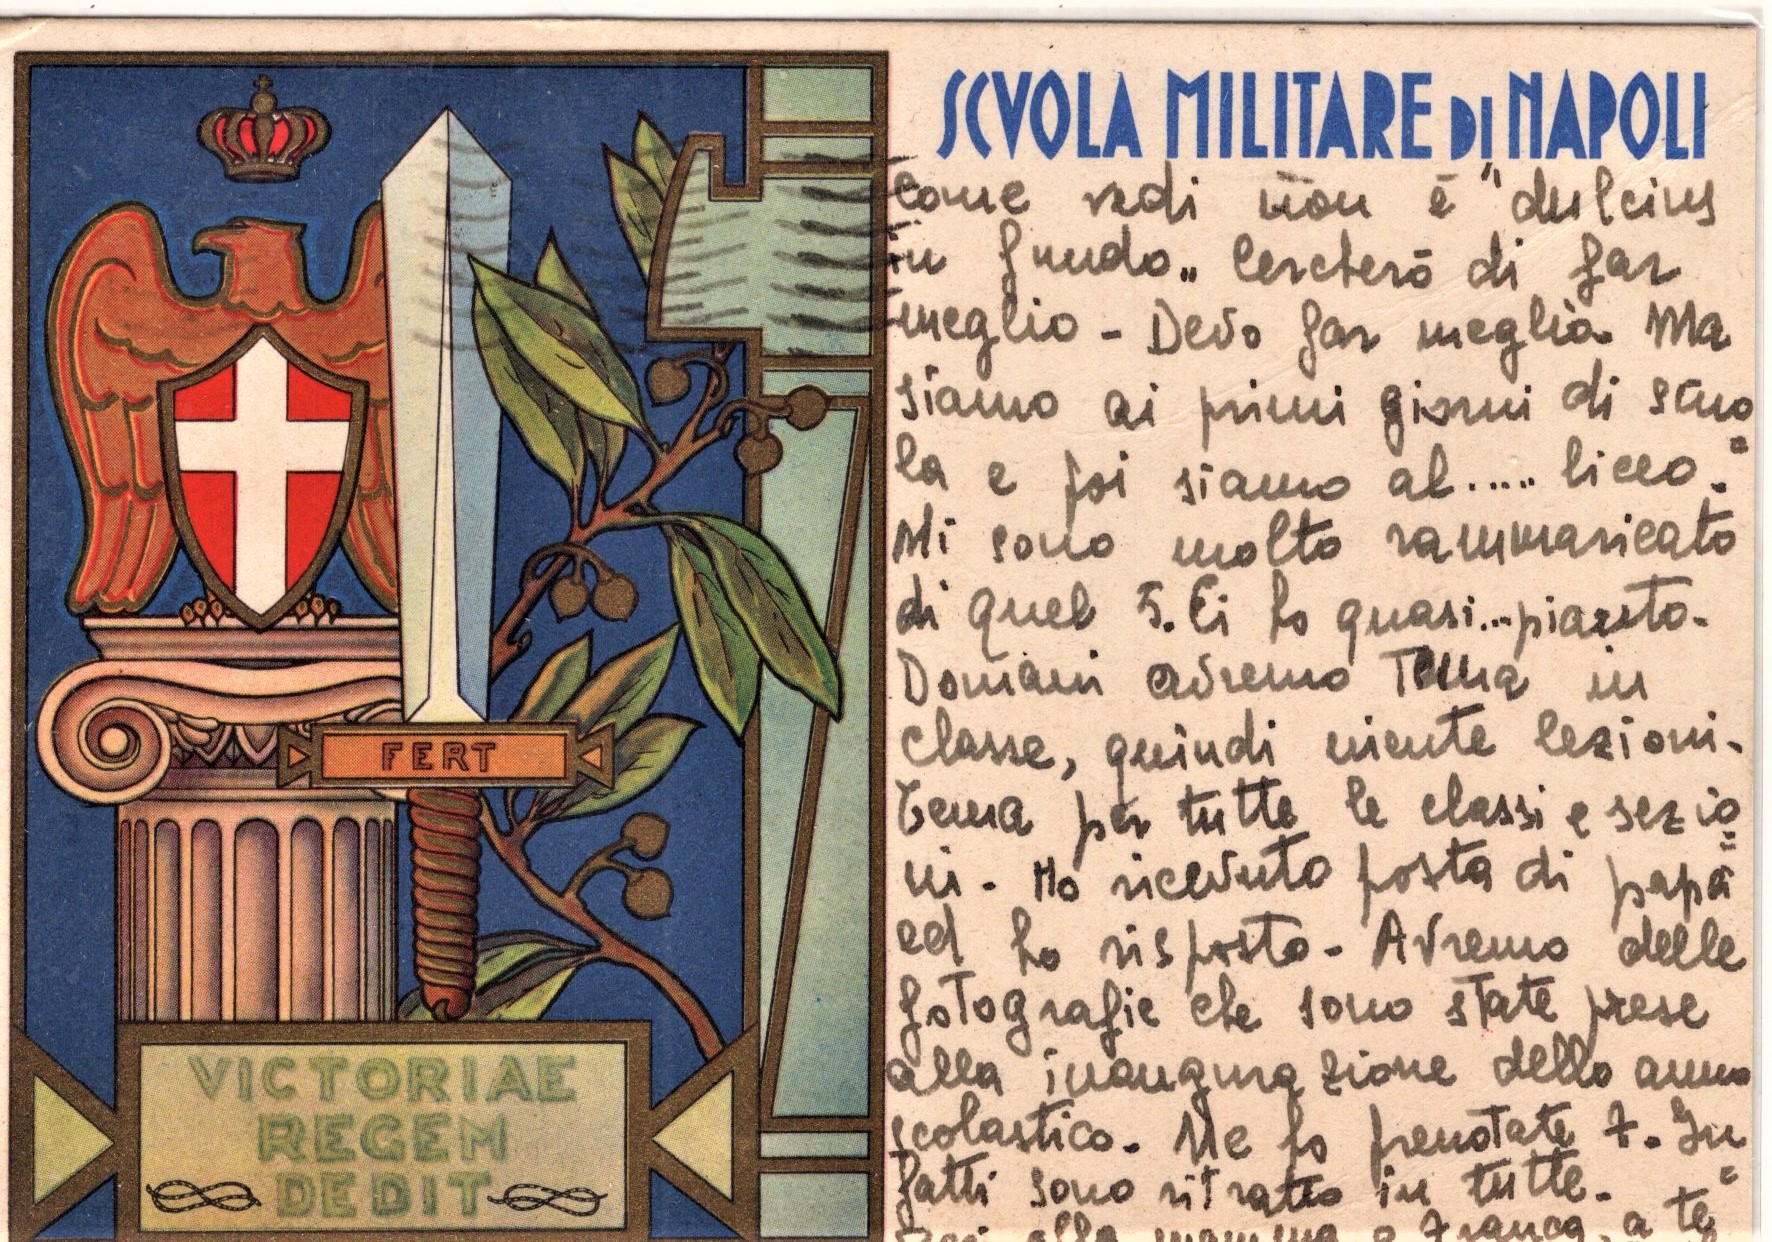 FERT
VICTORIAE
REGEM
DEDIT
SCVOLA MILITARE DI NAPOLI
Come vedi non è "dulcius
in fundo„ Cercherò di far
meglio - Devo far meglio. Ma
siamo ai primi giorni di scuo
la e poi siamo al..... liceo.
Mi sono molto rammaricato
di quel 5. Ci ho quasi... pianto.
Domani avremo Tema in
classe, quindi niente lezioni.
Tema per tutte le classi e sezio=
ni. Ho ricevuto posta di papà
ed ho risposto. Avremo delle
fotografie che sono state prese
alla inaugurazione dello anno
scolastico. Me ho prenotate 7. In=
fatti sono ritratto in tutte.
alla mamma e Franca, a te